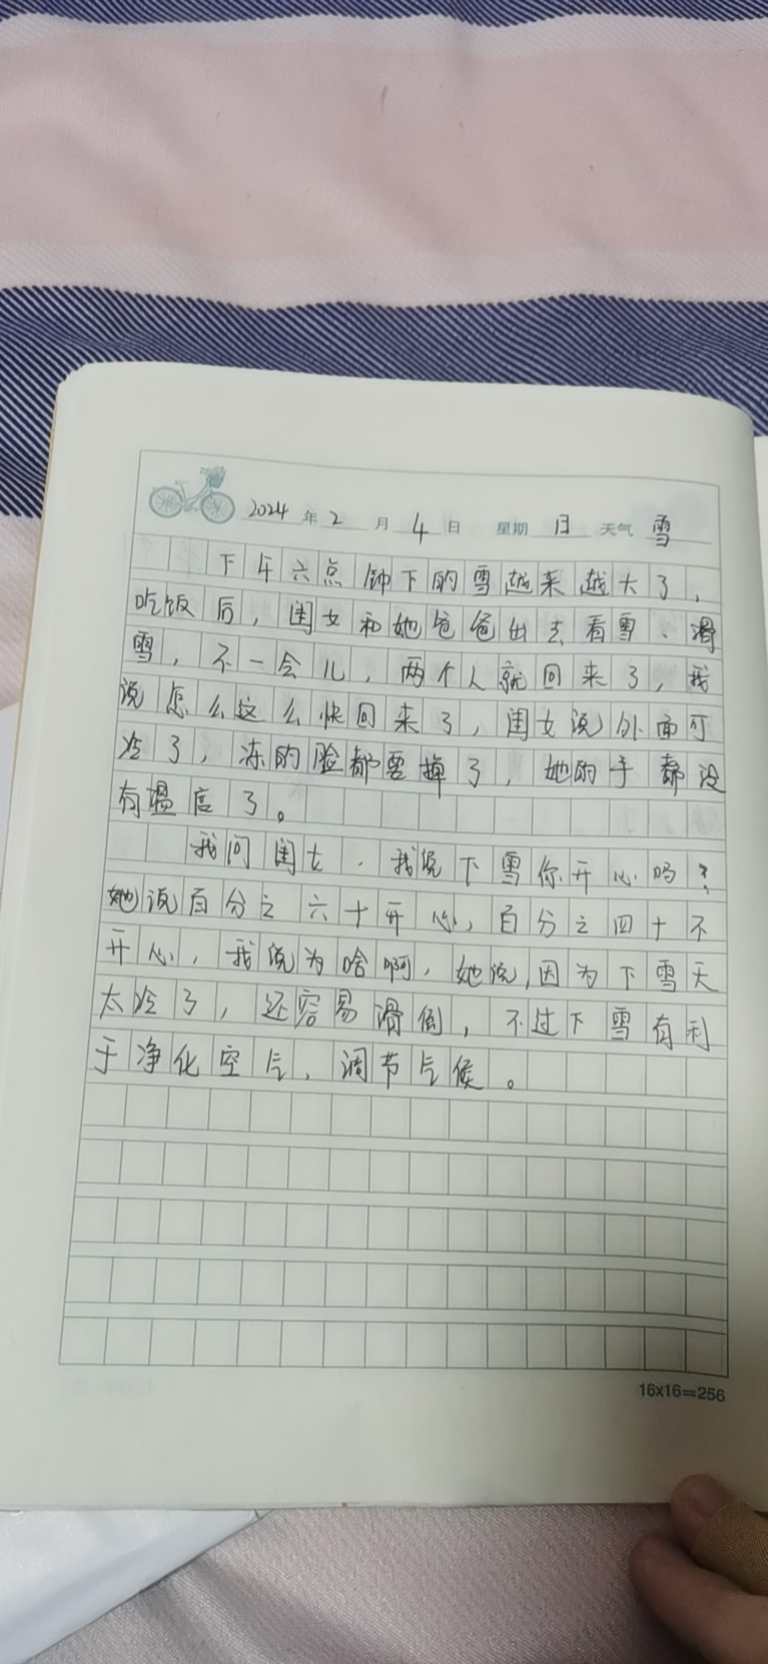 2024年2月4日 星期日 天气雪
下午六点钟下的雪越来越大了,
吃饭后,闺女和她爸爸出去看雪、滑
雪,不一会儿,两个人就回来了,我
说怎么这么快回来了,闺女说外面可
冷了,冻的脸都要掉了,她的手都没
有温度了。
我问闺女,我说下雪你开心吗?
她说百分之六十开心,百分之四十不
开心,我说为啥啊,她说,因为下雪天
太冷了,还容易滑倒,不过下雪有利
于净化空气,调节气候。
16x16=256